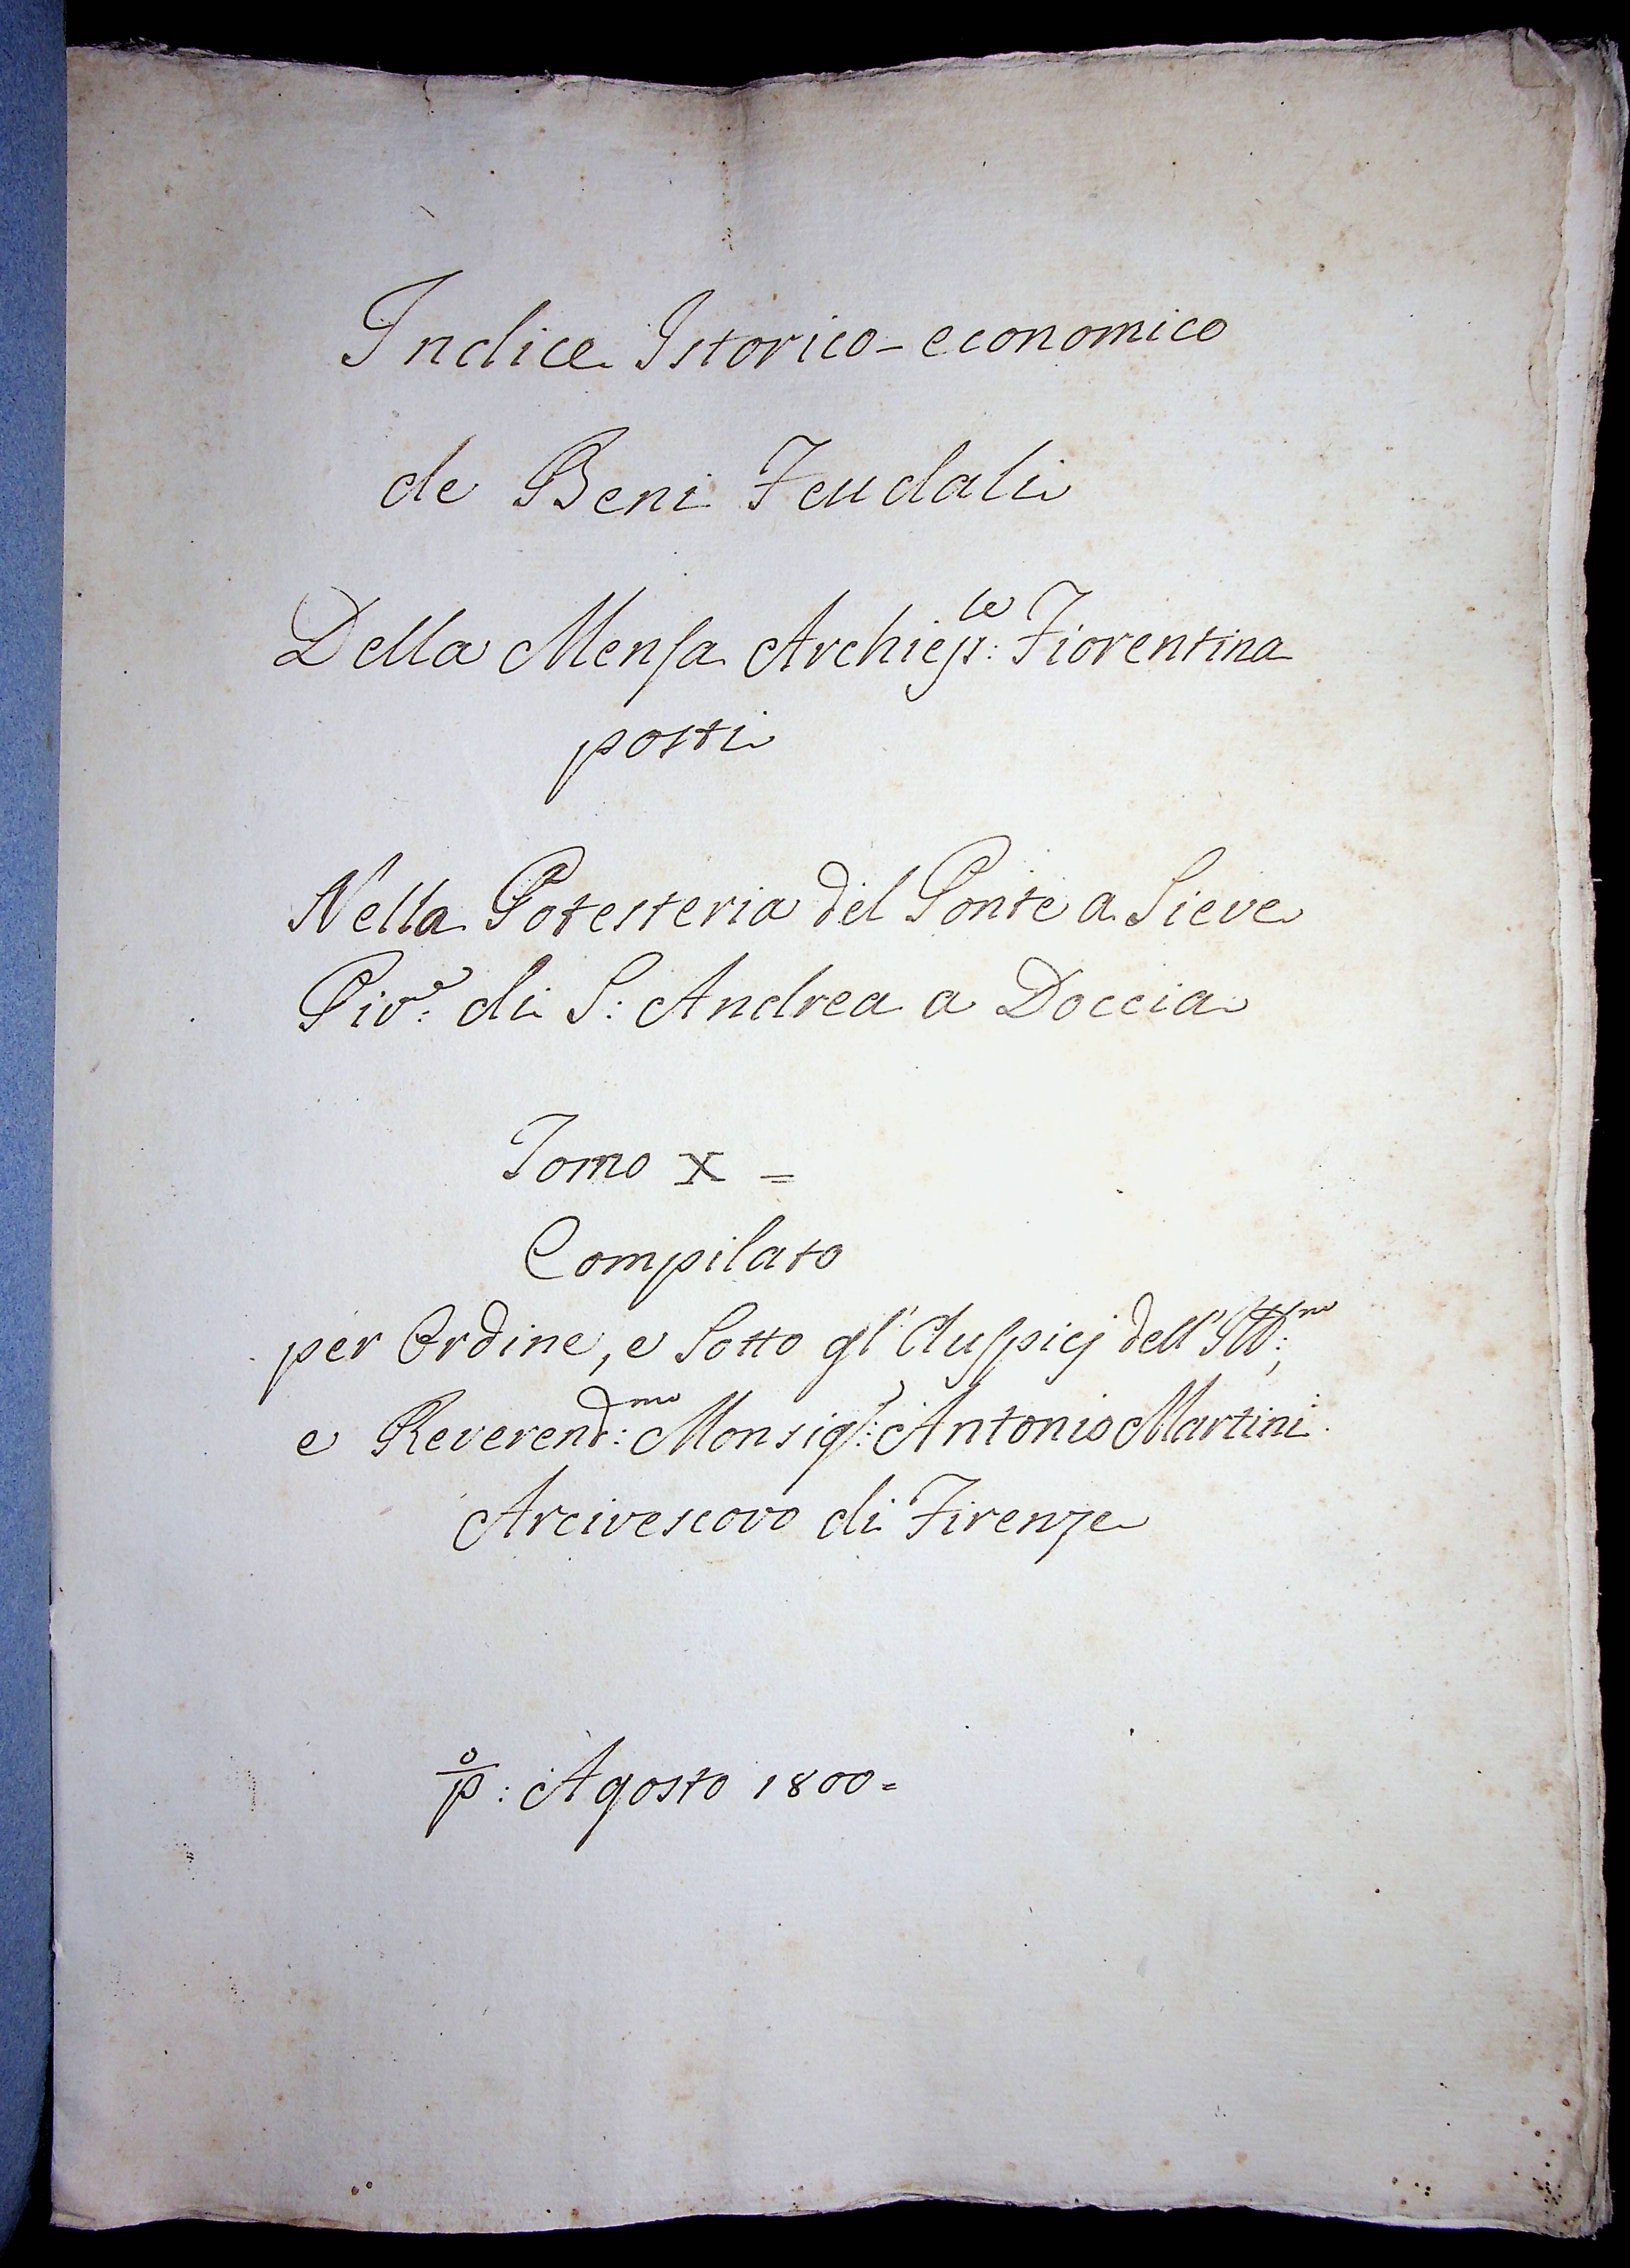 Indice Istorico-economico
de Beni Feudali
Della Mensa Archiep:le Fiorentina
posti
Nella Potesteria del Ponte a Sieve
Piv:e di S: Andrea a Doccia
Tomo X =
Compilato
per Ordine, e Sotto gl'Auspicj dell' Ill:mo
e Reverend:mo Monsig:r Antonio Martini
Arcivescovo di Firenze
p:o Agosto 1800=